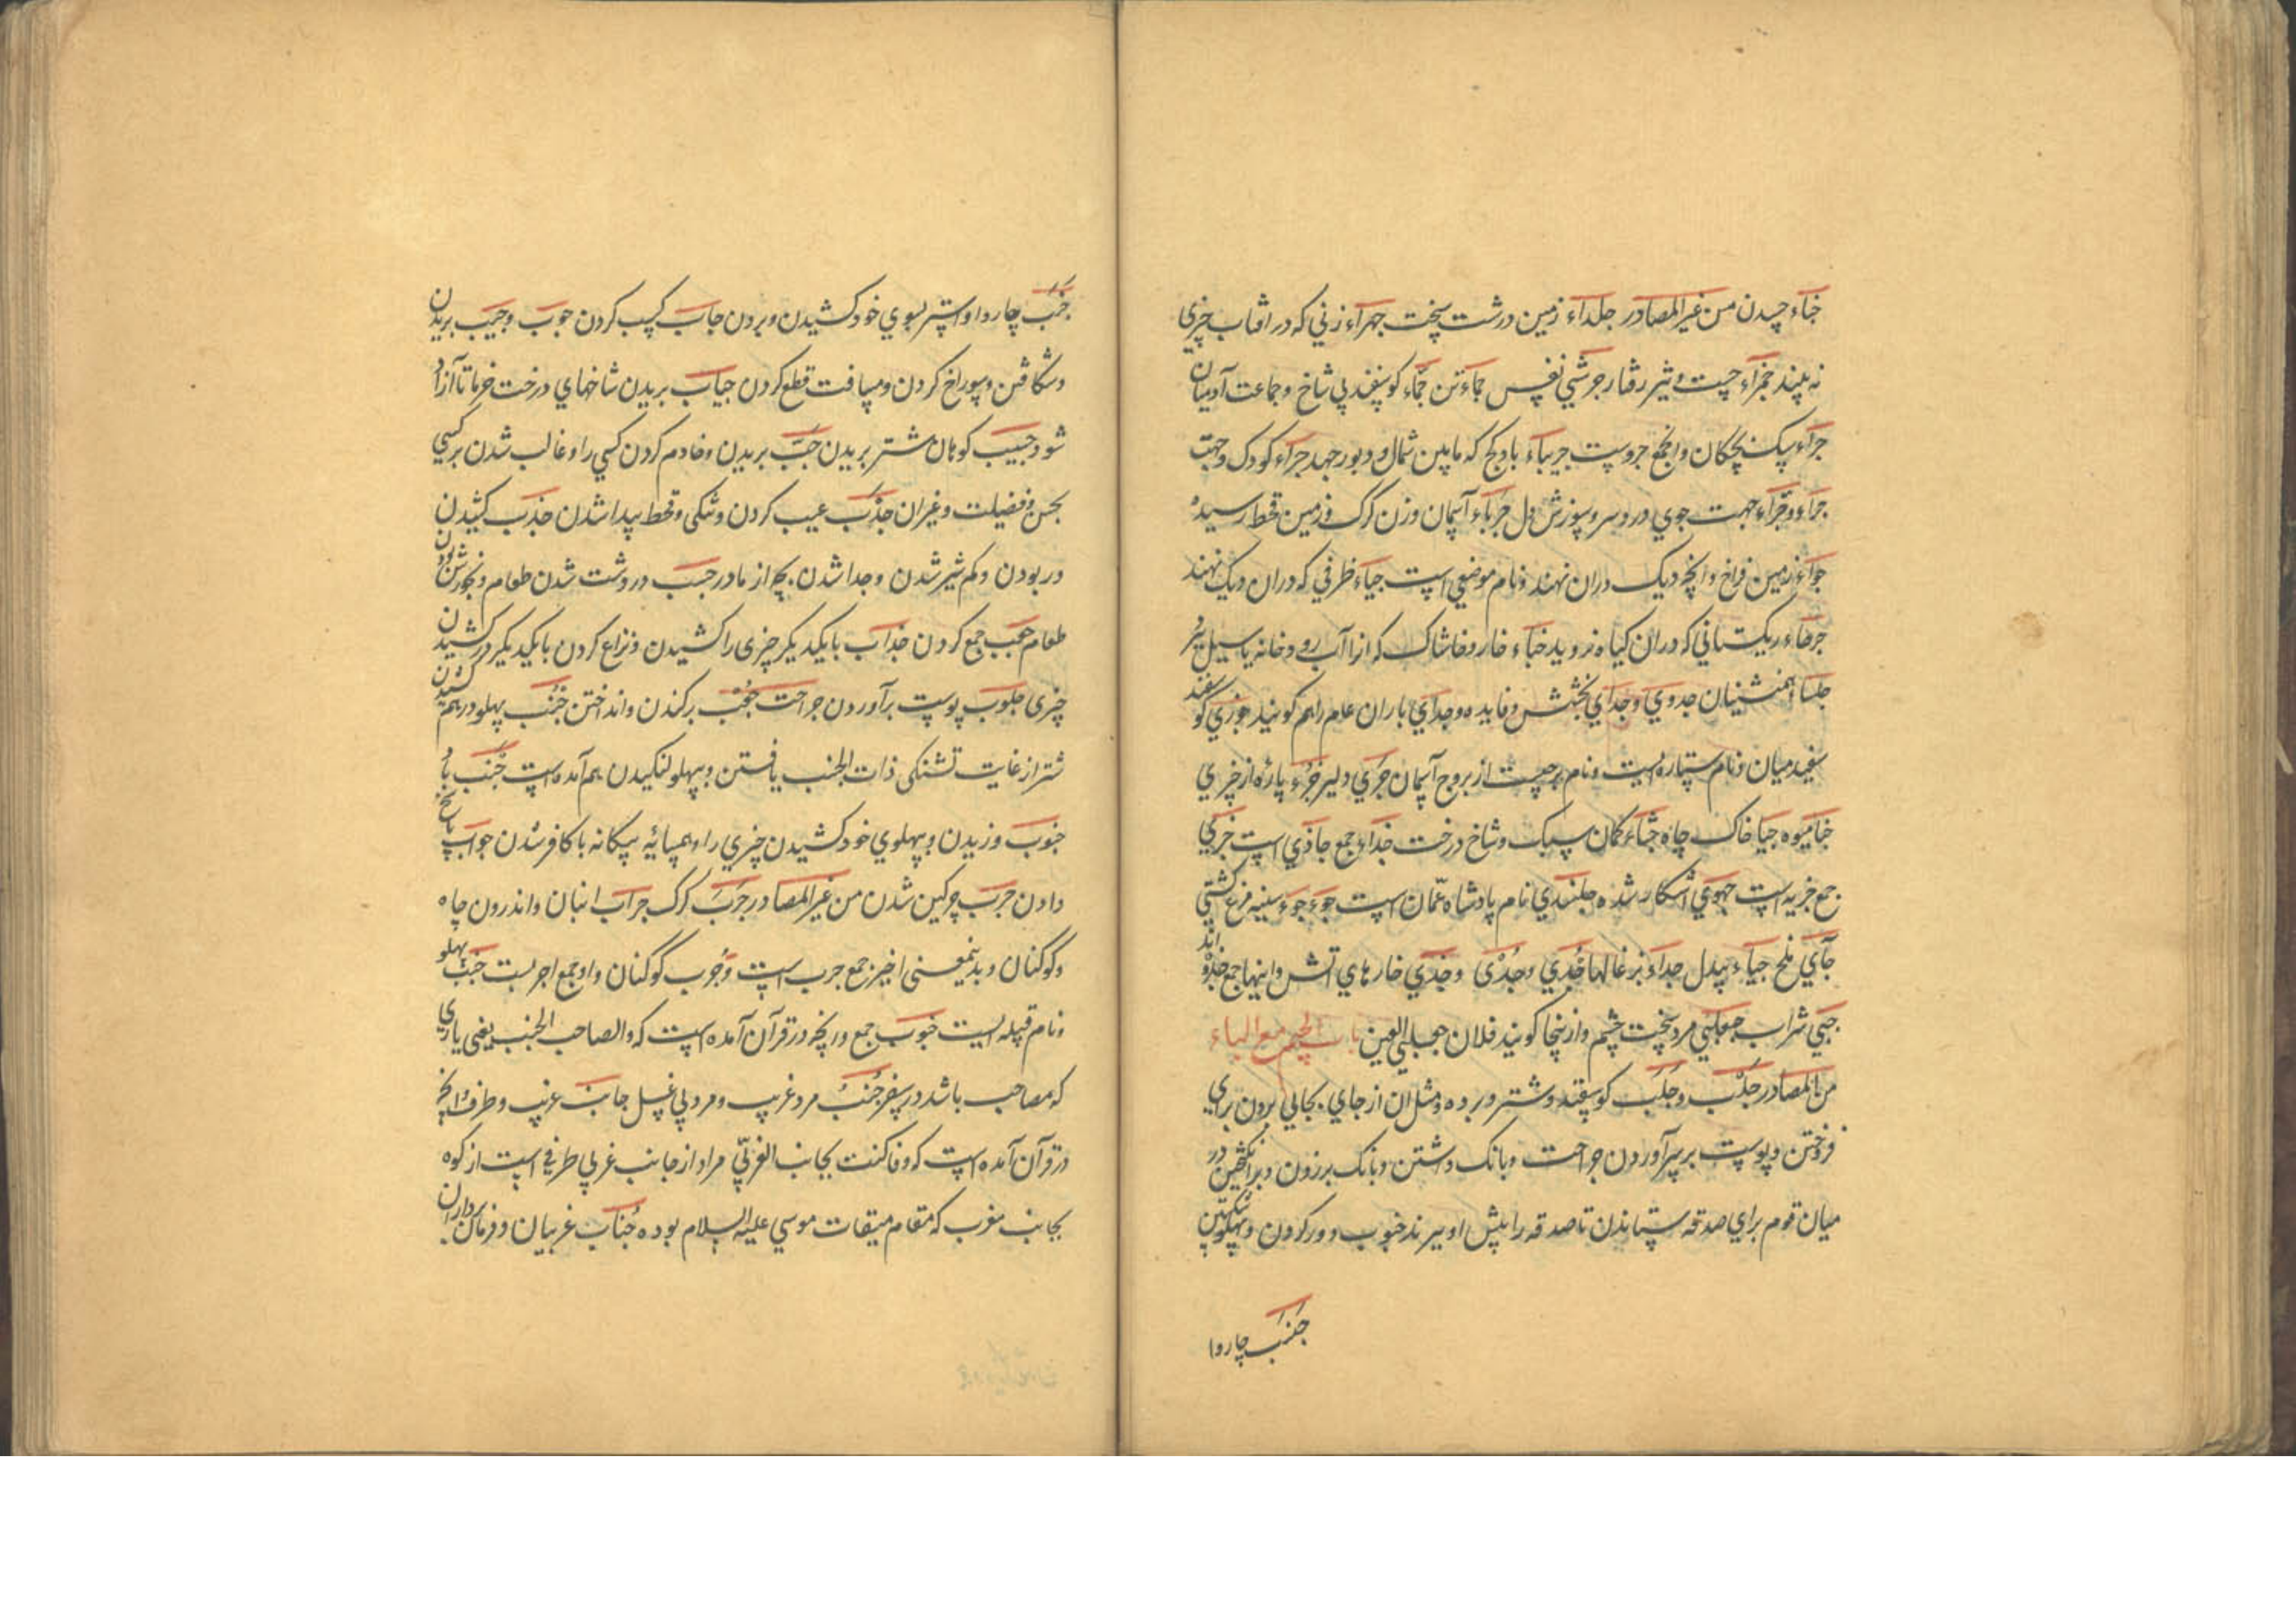 جناء چیدن من غیر المصادر جلداء زمین درشت سخت جهراء زنی که در افتاب چیزی
نه بیند جمزاء چست و تیز رفتار جرشی نفس جماء تن جمّاء کوسفند بی شاخ و جماعت آدمیان
جراء سک بچکان واجمع جروست جربیاء باد کج که مابین شمال و دبور جهد جراء کودک وجهت
جراء و جهت جوی درد سر و سوزش دل جرباء آسمان و زن کرک و زمین قحط رسیده
جواء زمین فراخ و انچه دیک دران نهند و نام موضعی است جیاء ظرفی که دران دیک نهند
جرعاء ریکستانی که دران کیاه نروید جفاء خار و خاشاک که انرا آب رودخانه یا سیل برد
جلسا همنشینان جدوی و جدای بخشش و فایده و جدای باران عام را هم کویند جوزی کوسفند
سفید میان و نام ستاره ایست و نام برجیست از بروج آسمان جری دلیر جزء پارۀ از چیزی
جنا میوه جبا خاک چاه جشاء کمان سبک و شاخ درخت جذاء جمع جاذی است جزی
جمع جزیه است جهوی آشکار شده جلندی نام پادشاه عمّان است جوء جوء سینه مرغ و کشتی
جآی ملخ جباء بددل جداء بزغالها جذی وجذی وجذی خارهای آتش و اینها جمع جذوه اند
جبی شراب جعلبی مرد سخت چشم و ازینجا کویند فلان جعلبی العین باب الجیم مع الباء
من المصادر جلب و جلب کوسفند و شتر و برده و مثل ان از جای بجایی بردن برای
فروختن و پوست بر سر آوردن جراحت و بانک داشتن و بانک بر زدن و برانکیختن در
میان قوم برای صدقه ستاندن تا صدقه را پیش او برند جنوب دور کردن و پهلو شکستن
جنب چاروا
جنب چاروا و استر بسوی خود کشیدن و بردن جاب کسب کردن جوب و جیب بریدن
و شکافتن و سوراخ کردن و مسافت قطع کردن جباب بریدن شاخهای درخت خرما تا آزاد
شود جبب کوهان شتر بریدن جبّ بریدن و خادم کردن کسی را و غالب شدن بر کسی
بحسن و فضیلت و غیر ان جذب عیب کردن و تنکی و قحط پیدا شدن جذب کشیدن
و ربودن و کم شیر شدن و جدا شدن بچه از مادر جشب درشت شدن طعام و نخورش بودن
طعام جعب جمع کردن جذاب با یکدیکر چیزی را کشیدن و نزاع کردن با یکدیکر در کشیدن
چیزی جلوب پوست برآوردن جراحت جعب برکندن و انداختن جنب پهلو درهم کشیدن
شتر از غایت تشنکی ذات الجنب یافتن و پهلو لنکیدن هم آمده است جنب باد
جنوب وزیدن و پهلوی خود کشیدن چیزی را و همسایۀ بیکانه با کافر شدن جواب پاسخ
دادن جرب چرکین شدن من غیر المصادر جرب کرک جراب انبان و اندرون چاه
و کوکنان و بدینمعنی اخیر جمع جرب است و جوب کوکنان و او جمع اجربست جنب پهلو
و نام قبیله ایست جنوب جمع و رنچه در قرآن آمده است که والصاحب الجنب یعنی یاری
که مصاحب باشد در سفر جنب مرد غریب و مرد بی غسل جانب غریب و طرف و انچه
در قرآن آمده است که و ما کنت بجانب الغربیّ مراد از جانب غربی طرفی است از کوه
بجانب مغرب که مقام میقات موسی علیه السلام بوده جناب غریبان و فرمان برداران